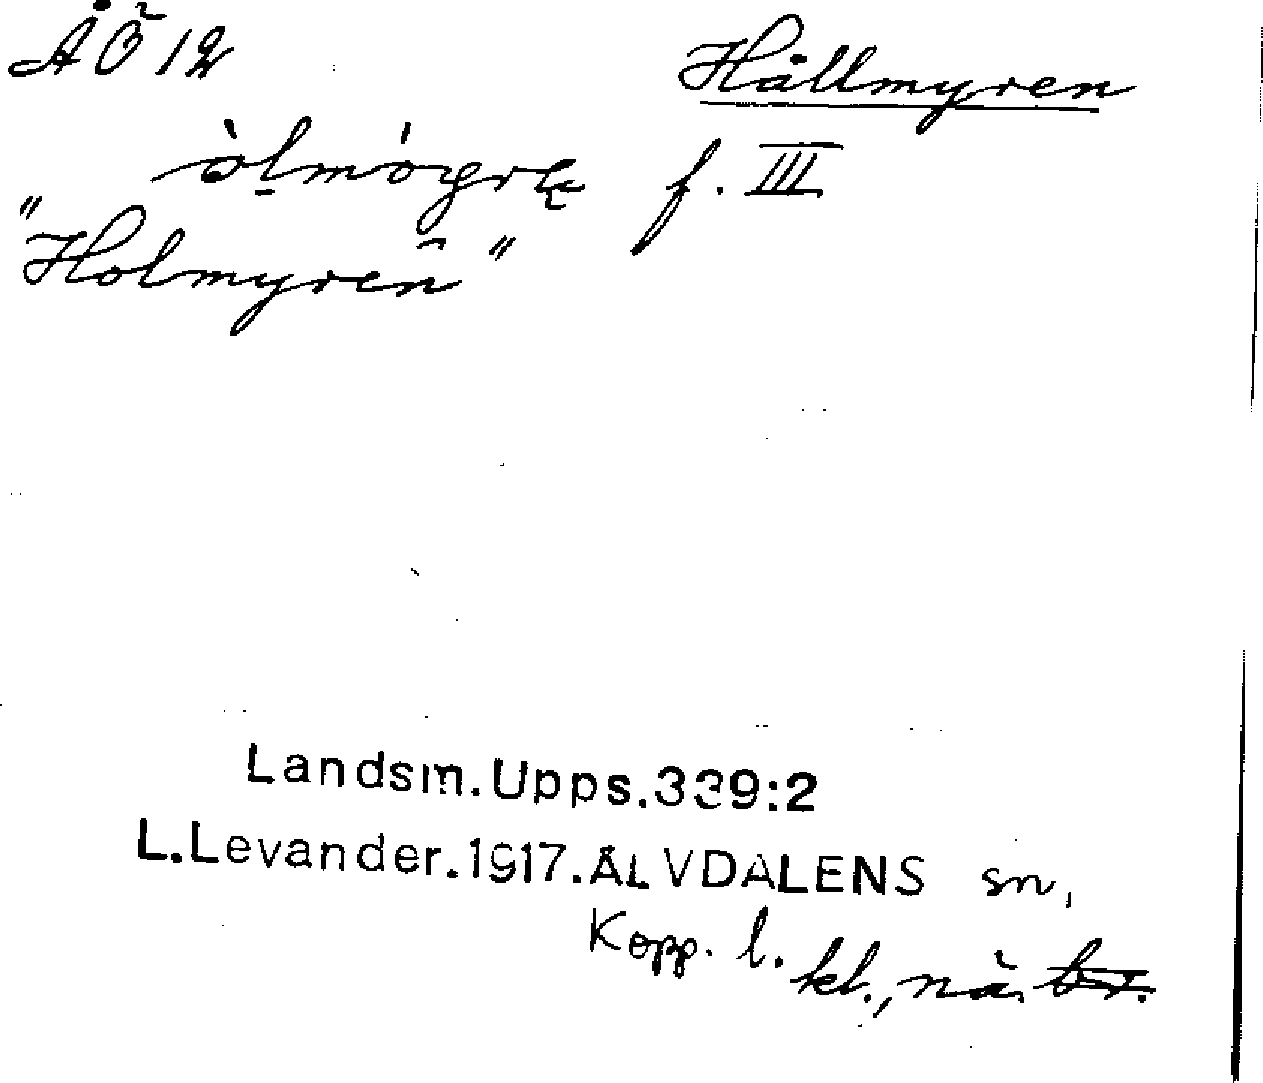 ÅÖ 12
Hållmyren
òlmógrę f. III
"Holmyren"
Landsm.Upps.339:2
L.Levander.1917.ÄLVDALENS sn,
Kopp. l.
kl., nå